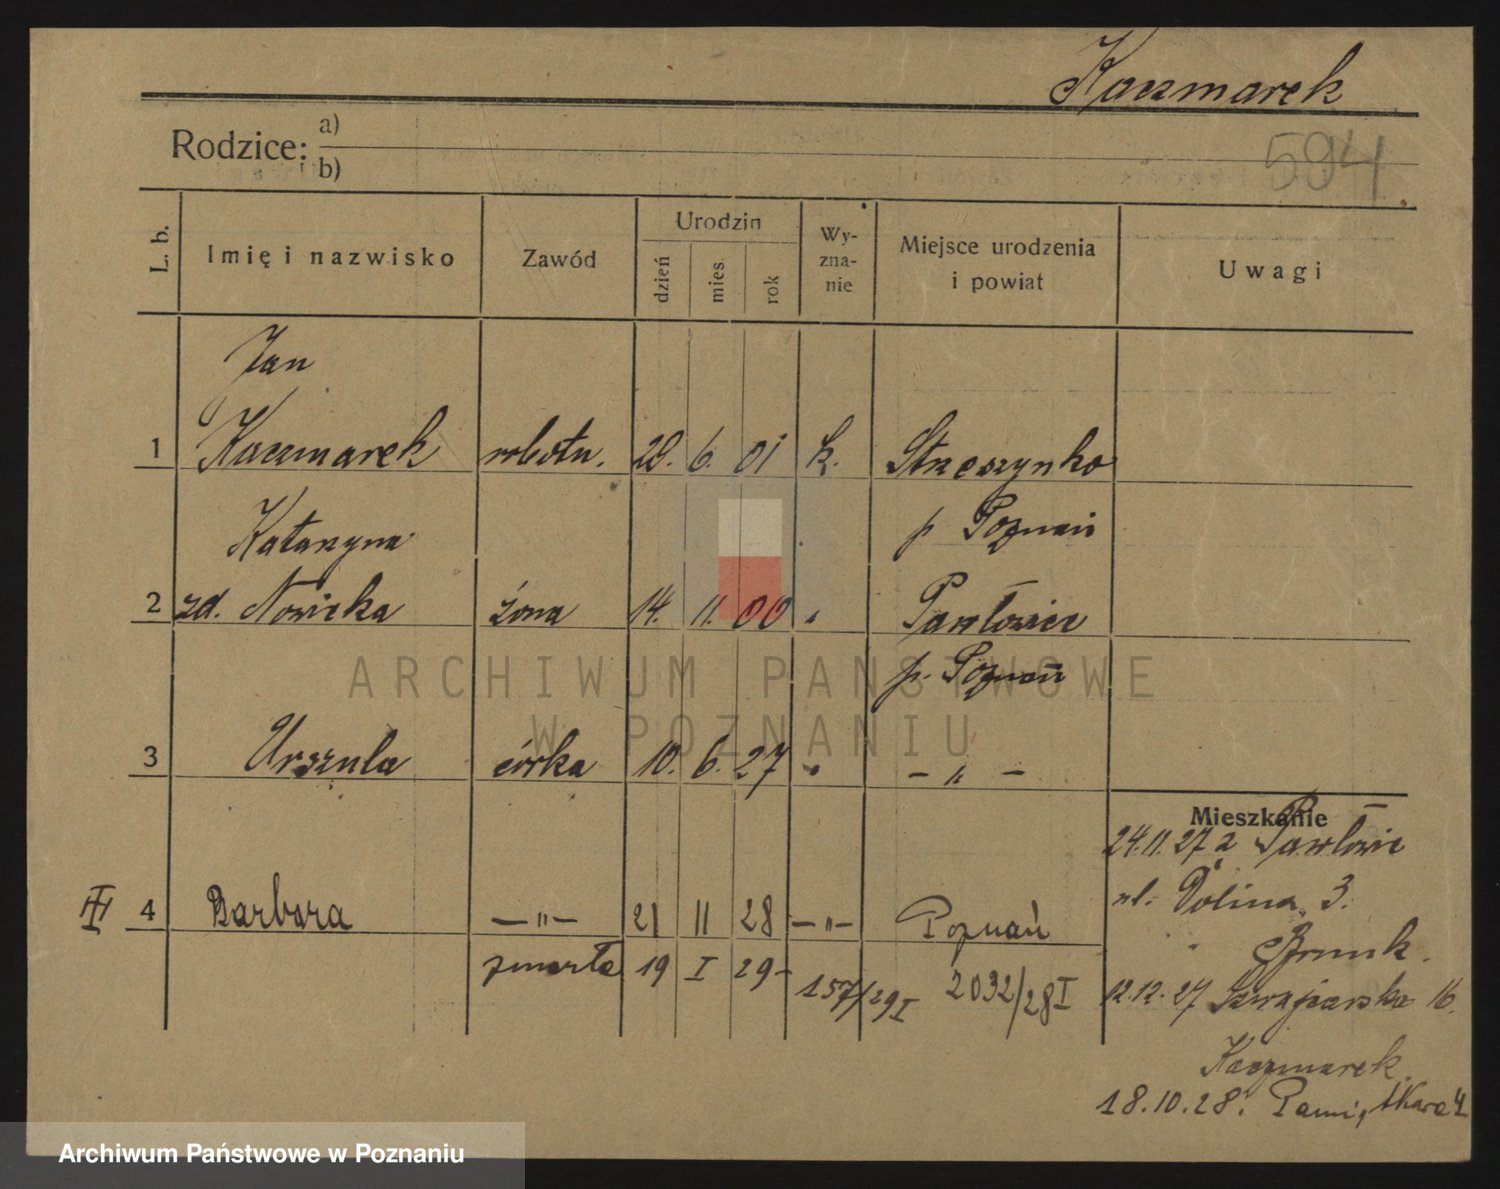 Kaczmarek
Rodzice:
a)
b)
594
L. b.
Imię i nazwisko
Zawód
Urodzin
dzień
mies.
rok
Wy-
zna-
nie
Miejsce urodzenia
i powiat
Uwagi
Jan
1 Kaczmarek robotn. 28. 6. 01 k. Strzeszynko
p Poznań
Katarzyna
2 zd. Nowicka żona 14. 11. 00 " Pawłowice
p. Poznań
3 Urszula córka 10. 6. 27 " — " —
4 Barbara — " — 21 II 28 — " — Poznań
zmarła 19 I 29 157/29 I 2032/28 I
Mieszkanie
24.11.27 z Pawłowic
ul. Dolina 3.
12.12.27 16.
Kaczmarek.
18.10.28.
ARCHIWUM PAŃSTWOWE
W POZNANIU
Archiwum Państwowe w Poznaniu